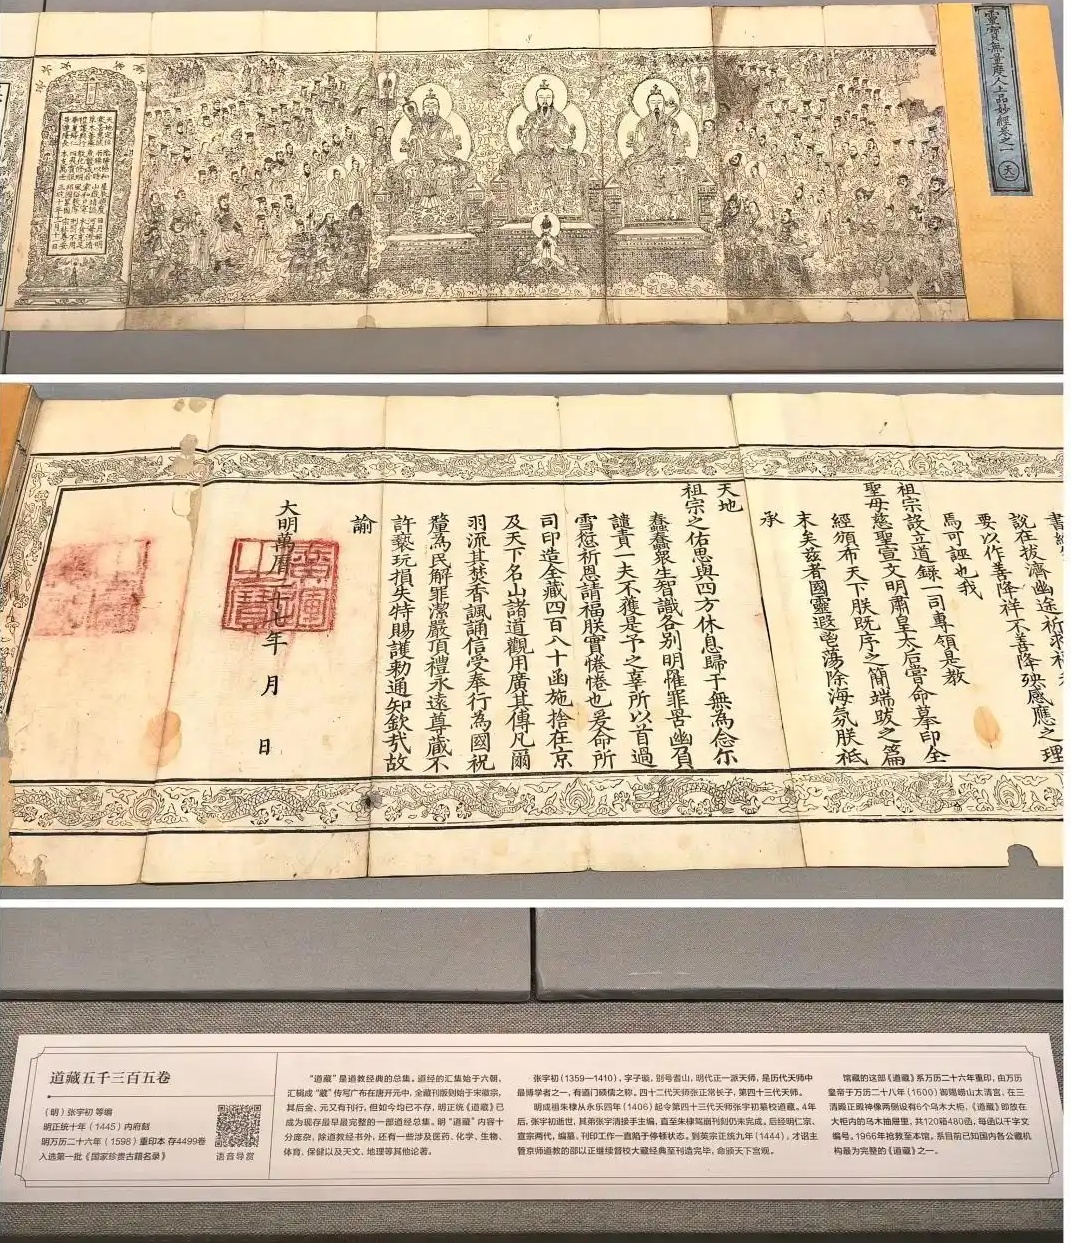 靈寶無量度人上品妙經卷之一 天
天地定位 陰陽協和 星辰順度 日月昭明
草木蕃廡
正統十年十一月十一日
說在拔濟幽途祈求福
要以作善降祥不善降殃感應之理
焉可誣也我
祖宗設立道錄一司專領是教
聖母慈聖宣文明肅皇太后嘗命摹印全
經頒布天下朕既序之簡端跋之篇
末矣茲者國靈遐鬯蕩除海氛朕祗
承
天地
祖宗之佑思與四方休息歸于無為念尔
蠢蠢衆生智識各別明罹罪罟幽負
譴責一夫不獲是予之辜所以首過
雪愆祈恩請福朕實惓惓也爰命所
司印造全藏四百八十函施捨在京
及天下名山諸道觀用廣其傳凡爾
羽流其焚香諷誦信受奉行為國祝
釐為民解罪潔嚴頂禮永遠尊藏不
許褻玩損失特賜護勑通知欽哉故
諭
大明萬曆二十七年 月 日
道藏五千三百五卷
（明）张宇初 等编
明正统十年（1445）内府刻
明万历二十六年（1598）重印本 存4499卷
入选第一批《国家珍贵古籍名录》
语音导赏
“道藏”是道教经典的总集。道经的汇集始于六朝，
汇辑成“藏”传写广布在唐开元中，全藏刊版则始于宋徽宗，
其后金、元又有刊行，但如今均已不存，明正统《道藏》已
成为现存最早最完整的一部道经总集。明“道藏”内容十
分庞杂，除道教经书外，还有一些涉及医药、化学、生物、
体育、保健以及天文、地理等其他论著。
张宇初（1359—1410），字子璇，别号耆山，明代正一派天师，是历代天师中
最博学者之一，有道门硕儒之称。四十二代天师张正常长子，第四十三代天师。
明成祖朱棣从永乐四年（1406）起令第四十三代天师张宇初纂校道藏。4年
后，张宇初逝世，其弟张宇清接手主编，直至朱棣驾崩刊刻仍未完成。后经明仁宗、
宣宗两代，编纂、刊印工作一直陷于停顿状态，到英宗正统九年（1444），才诏主
管京师道教的邵以正继续督校大藏经典至刊造完毕，命颁天下宫观。
馆藏的这部《道藏》系万历二十六年重印，由万历
皇帝于万历二十八年（1600）御赐崂山太清宫，在三
清殿正殿神像两侧设有6个乌木大柜，《道藏》即放在
大柜内的乌木抽屉里，共120箱480函，每函以千字文
编号。1966年抢救至本馆，系目前已知国内各公藏机
构最为完整的《道藏》之一。